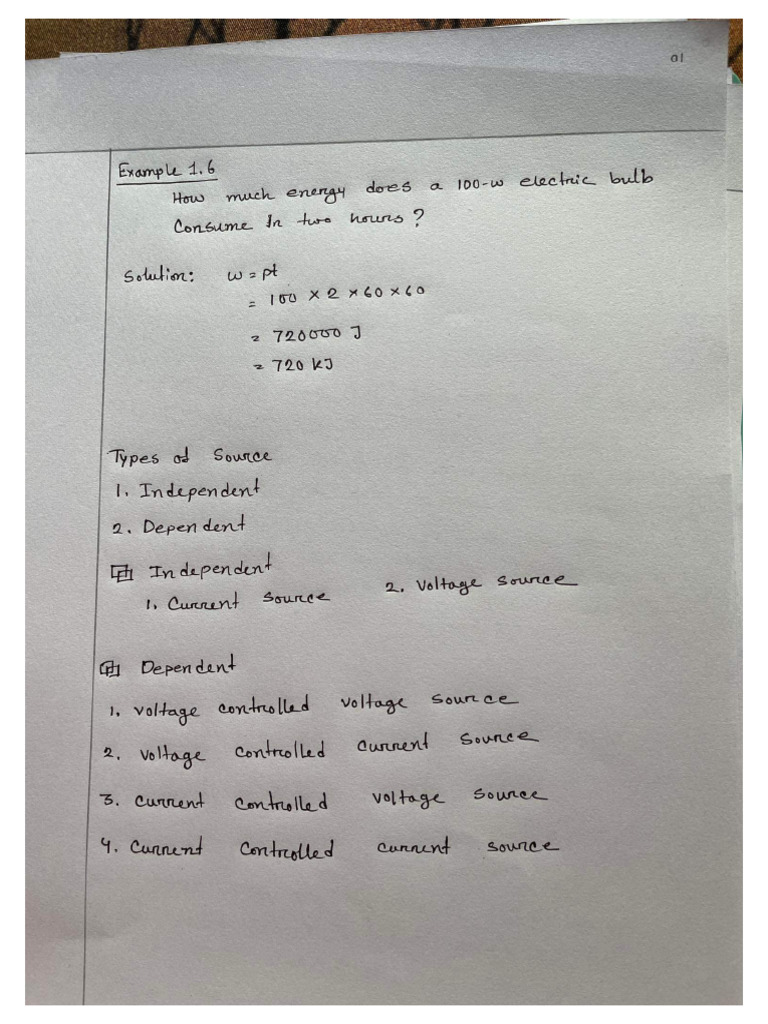 01
Example 1.6
How much energy does a 100-w electric bulb
Consume In two hours?
Solution: w = pt
= 100 × 2 × 60 × 60
= 720000 J
= 720 KJ
Types of Source
1. Independent
2. Dependent
Independent
1. Current Source 2. Voltage source
Dependent
1. voltage controlled voltage source
2. voltage controlled current source
3. current controlled voltage source
4. Current controlled current source